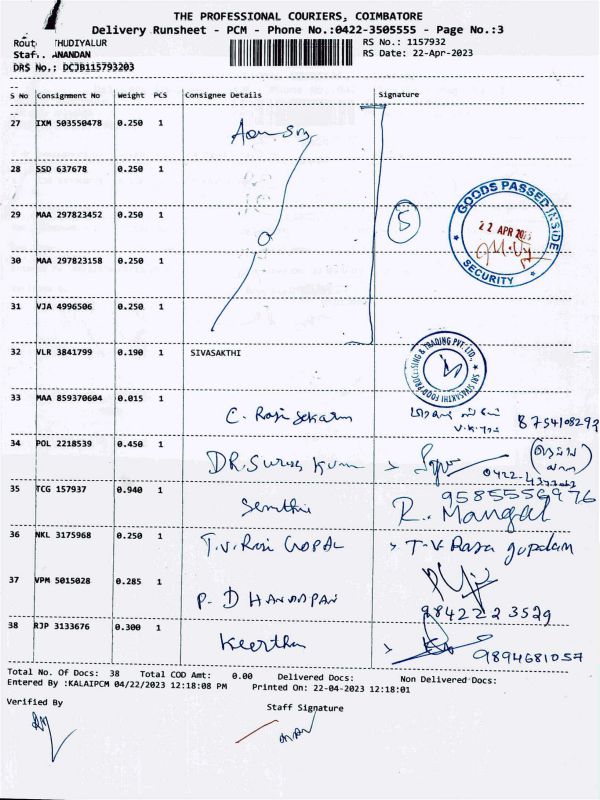 THE PROFESSIONAL COURIERS, COIMBATORE
Delivery Runsheet - PCM - Phone No.:0422-3505555 - Page No.:3
Rout THUDIYALUR RS No.: 1157932
Staf.. ANANDAN RS Date: 22-Apr-2023
DRS No.: DCJB115793203
S No Consignment No Weight PCS Consignee Details Signature
27 IXM 503550478 0.250 1
28 SSD 637678 0.250 1
29 MAA 297823452 0.250 1
5
GOODS PASSED INSIDE
22 APR 2023
SECURITY
30 MAA 297823158 0.250 1
31 VJA 4996506 0.250 1
32 VLR 3841799 0.190 1 SIVASAKTHI
SRI SIVASAKTHI FOOD PROCESSING & TRADING PVT. LTD.,
33 MAA 859370604 0.015 1
C. Rajasekaran 8754108293
34 POL 2218539 0.450 1
DR. Suresh Kumar
0422-
35 TCG 157937 0.940 1 9585556976
Senthil R. Mangal
36 NKL 3175968 0.250 1
T.V. Raja GOPAL T.V Raja gopalan
37 VPM 5015028 0.285 1
P. DHANAPAN 9842223529
38 RJP 3133676 0.300 1
Keerthan 9894681057
Total No. Of Docs: 38 Total COD Amt: 0.00 Delivered Docs: Non Delivered Docs:
Entered By :KALAIPCM 04/22/2023 12:18:08 PM Printed On: 22-04-2023 12:18:01
Verified By Staff Signature